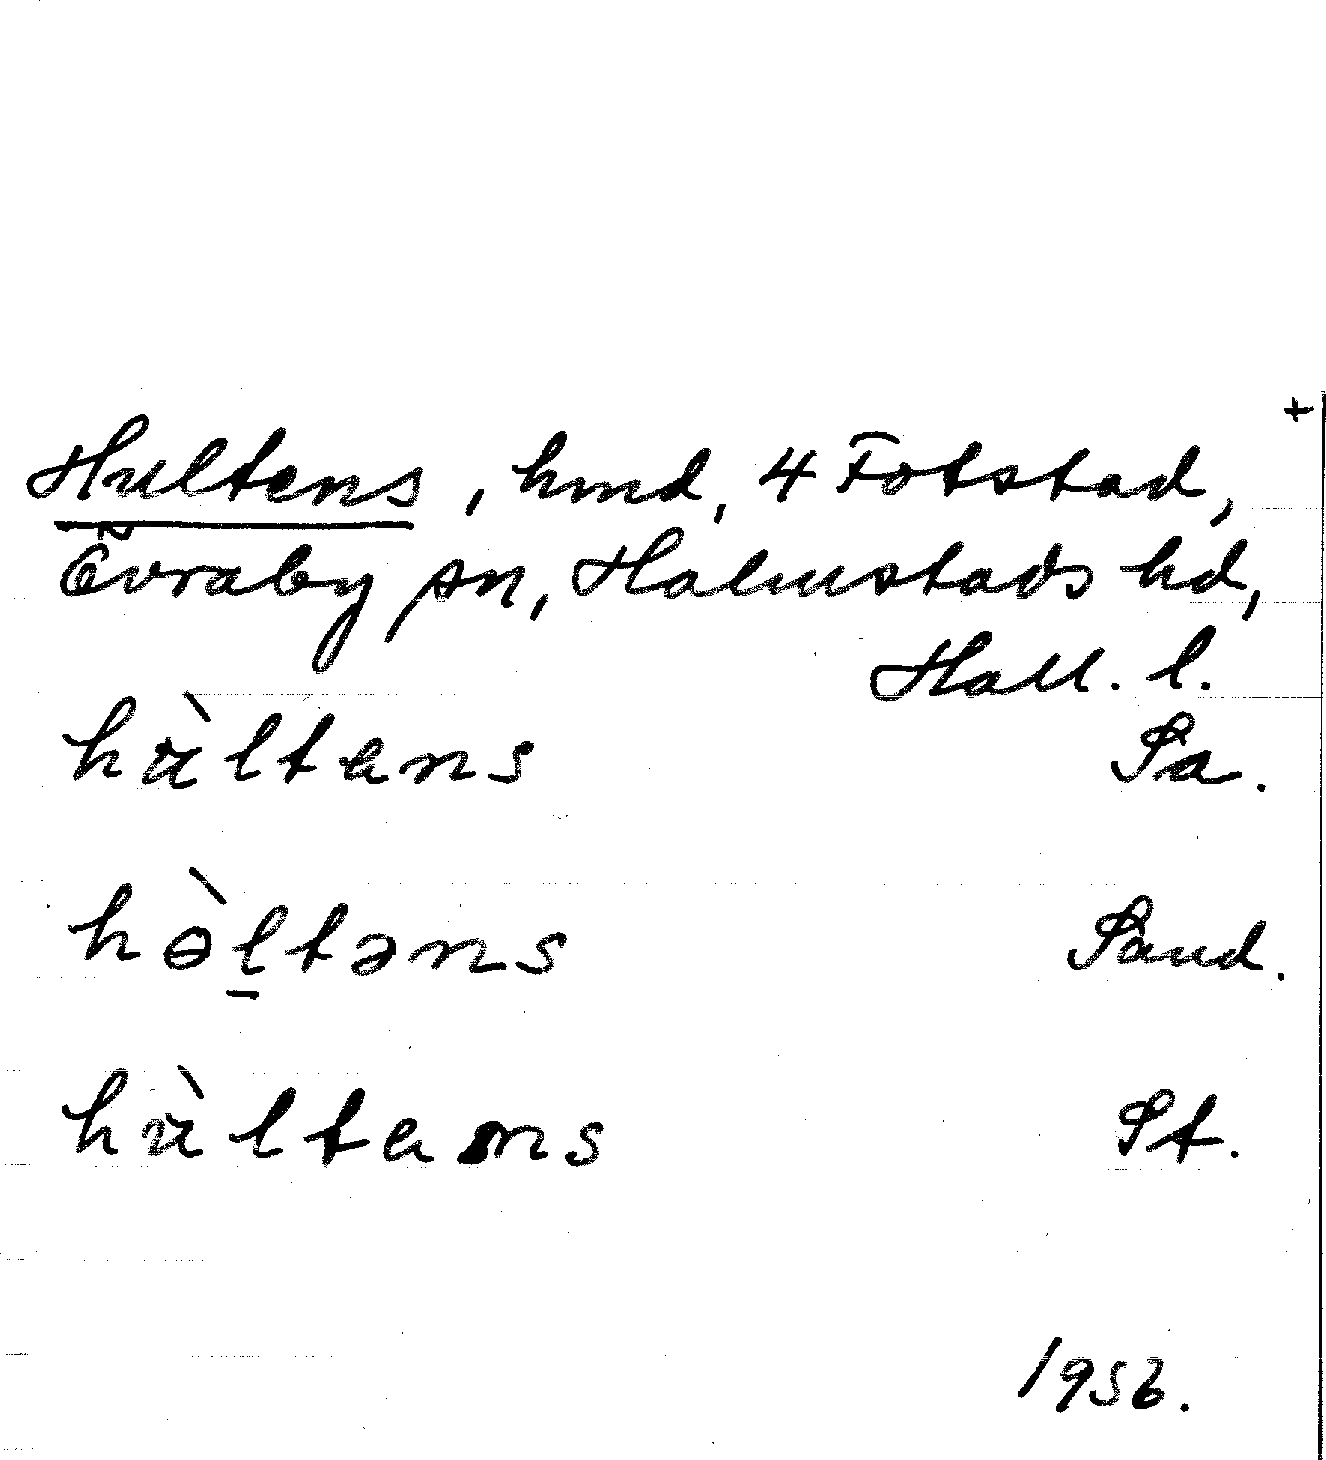 +
Hultens, hmd, 4 Fotstad,
Övraby sn, Halmstads hd,
Hall. l.
hùltens Sa.
hòltəns Sand.
hùltens St.
1956.